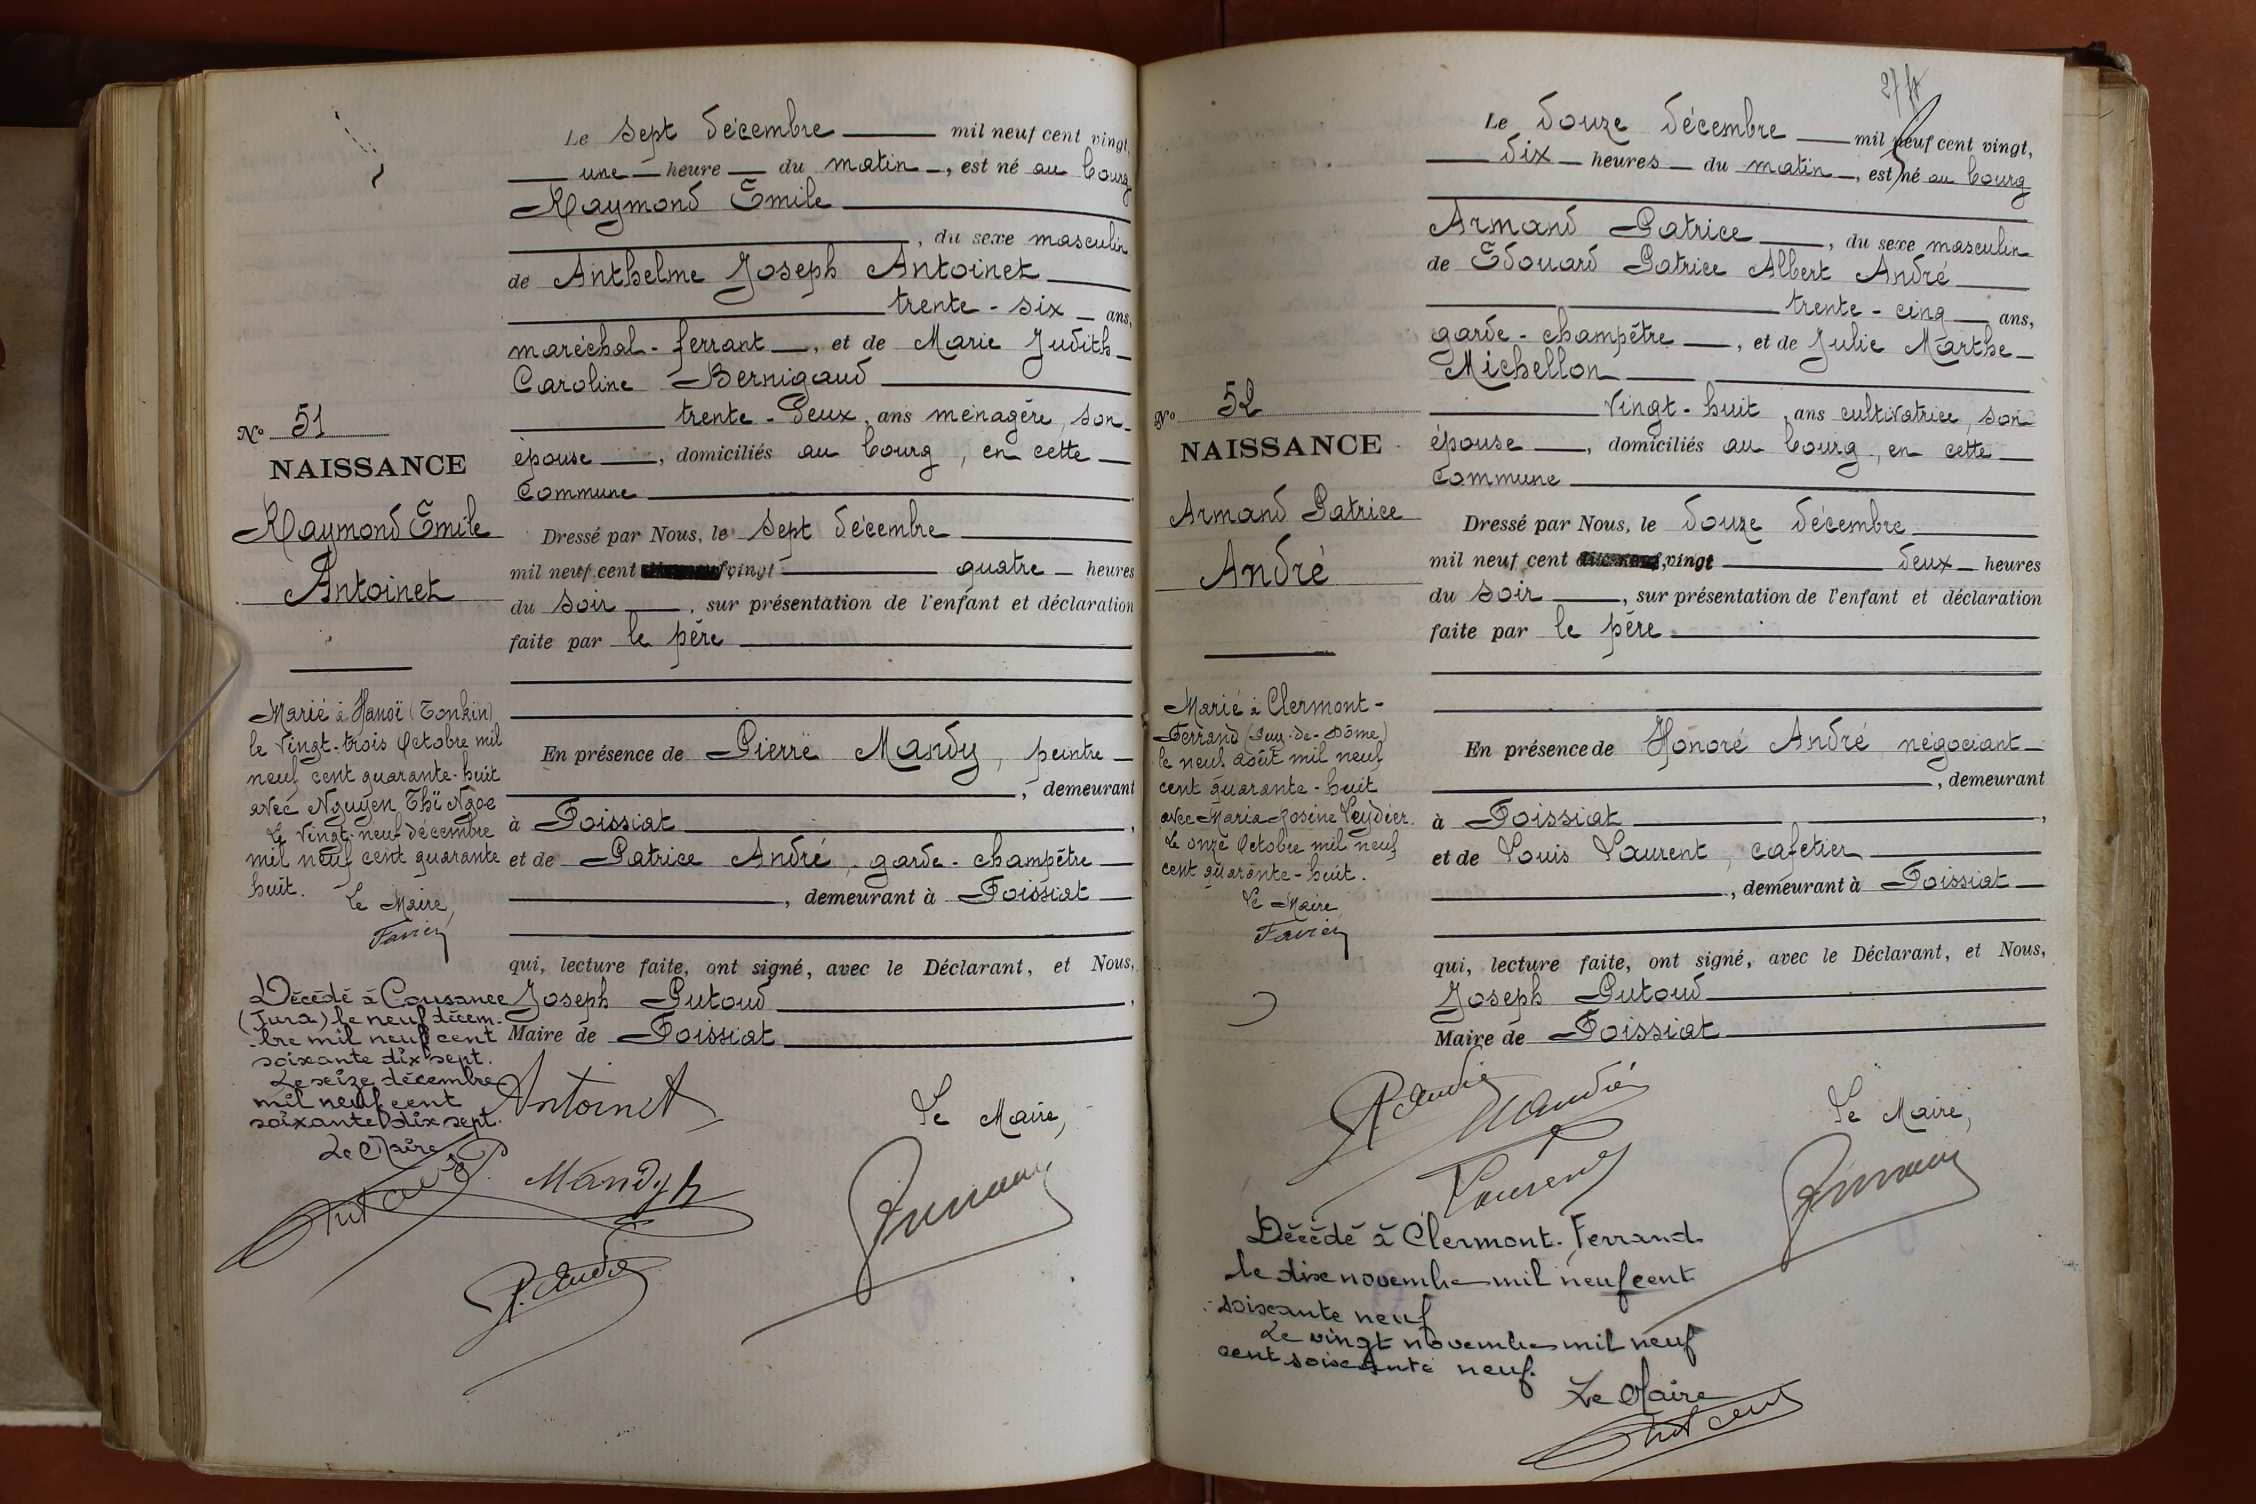 Le sept décembre mil neuf cent vingt,
une heure du matin, est né au bourg
Raymond Emile
, du sexe masculin
de Anthelme Joseph Antoinet
trente-six ans,
maréchal-ferrant, et de Marie Judith
Caroline Bernigaud
trente-deux ans ménagère, son
épouse, domiciliés au bourg, en cette
commune
Dressé par Nous, le sept décembre
mil neuf cent vingt quatre heures
du soir, sur présentation de l'enfant et déclaration
faite par le père
En présence de Pierre Mandy, peintre
, demeurant
à Foissiat,
et de Patrice André, garde-champêtre
, demeurant à Foissiat
qui, lecture faite, ont signé, avec le Déclarant, et Nous,
Joseph Putoud,
Maire de Foissiat
Antoinet
Le Maire,
Mandy
P. André
No 51
NAISSANCE
Raymond Emile
Antoinet
Marié à Hanoï (Tonkin)
le vingt-trois Octobre mil
neuf cent quarante-huit
avec Nguyen Thï Ngoc
Le vingt-neuf décembre
mil neuf cent quarante
huit.
Le Maire,
Favier
Décédé à Cousance
(Jura) le neuf décem-
bre mil neuf cent
soixante dix sept.
Le seize décembre
mil neuf cent
soixante dix sept.
Le Maire
Le douze décembre mil neuf cent vingt,
dix heures du matin, est né au bourg
Armand Patrice, du sexe masculin
de Edouard Patrice Albert André
trente-cinq ans,
garde-champêtre, et de Julie Marthe
Michellon
vingt-huit, ans cultivatrice, son
épouse, domiciliés au bourg, en cette
commune
Dressé par Nous, le douze décembre
mil neuf cent vingt deux heures
du soir, sur présentation de l'enfant et déclaration
faite par le père
En présence de Honoré André négociant
, demeurant
à Foissiat,
et de Louis Laurent, cafetier
, demeurant à Foissiat
qui, lecture faite, ont signé, avec le Déclarant, et Nous,
Joseph Putoud
Maire de Foissiat
P. André
André
Le Maire,
Laurent
No 52
NAISSANCE
Armand Patrice
André
Marié à Clermont-
Ferrand (Puy-de-Dôme)
le neuf août mil neuf
cent quarante-huit
avec Maria Rosine Veydier.
Le onze Octobre mil neuf
cent quarante-huit.
Le Maire
Favier
Décédé à Clermont-Ferrand
le dix novembre mil neuf cent
soixante neuf
Le vingt novembre mil neuf
cent soixante neuf.
Le Maire